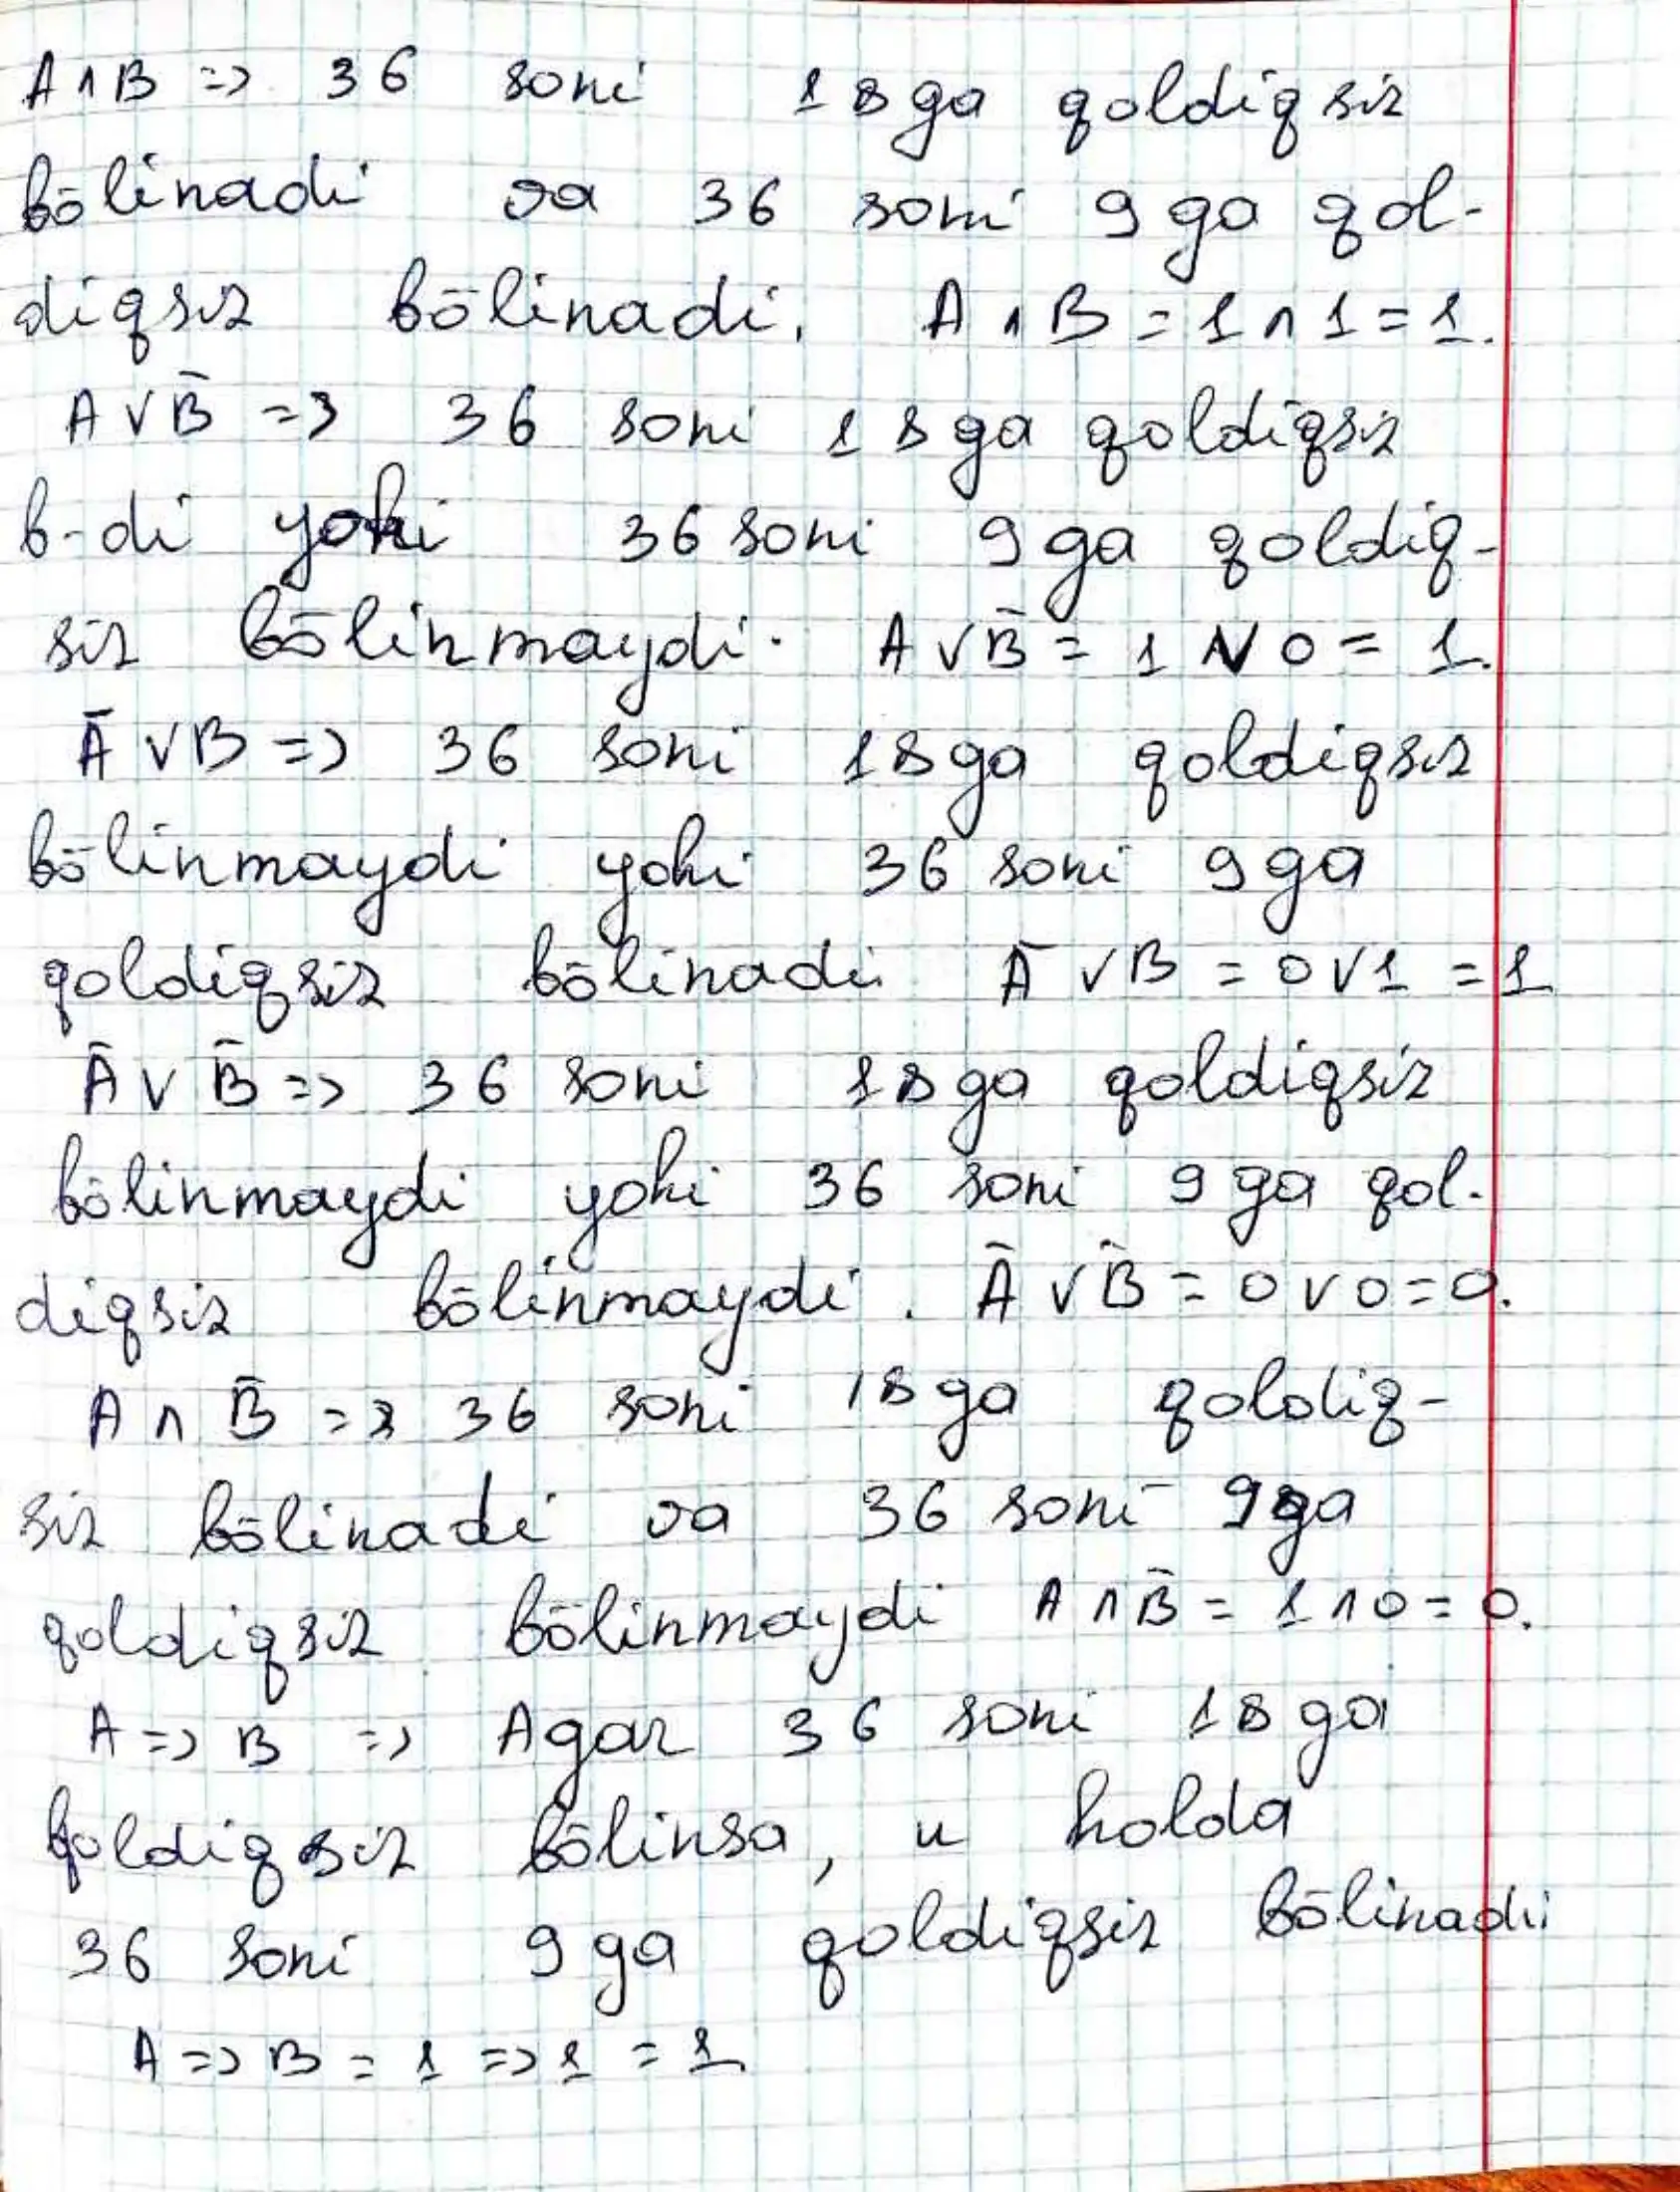 A ∧ B => 36 soni 18 ga qoldiqsiz
bōlinadi va 36 soni 9 ga qol-
diqsiz bōlinadi. A ∧ B = 1 ∧ 1 = 1.
A ∨ B̄ => 36 soni 18 ga qoldiqsiz
b-di yoki 36 soni 9 ga qoldiq-
siz bōlinmaydi. A ∨ B̄ = 1 ∨ 0 = 1.
Ā ∨ B => 36 soni 18 ga qoldiqsiz
bōlinmaydi yoki 36 soni 9 ga
qoldiqsiz bōlinadi Ā ∨ B = 0 ∨ 1 = 1
Ā ∨ B̄ => 36 soni 18 ga qoldiqsiz
bōlinmaydi yoki 36 soni 9 ga qol-
diqsiz bōlinmaydi. Ā ∨ B̄ = 0 ∨ 0 = 0.
A ∧ B̄ => 36 soni 18 ga qoldiq-
siz bōlinadi va 36 soni 9 ga
qoldiqsiz bōlinmaydi A ∧ B̄ = 1 ∧ 0 = 0.
A => B => Agar 36 soni 18 ga
qoldiqsiz bōlinsa, u holda
36 soni 9 ga qoldiqsiz bōlinadi
A => B = 1 => 1 = 1